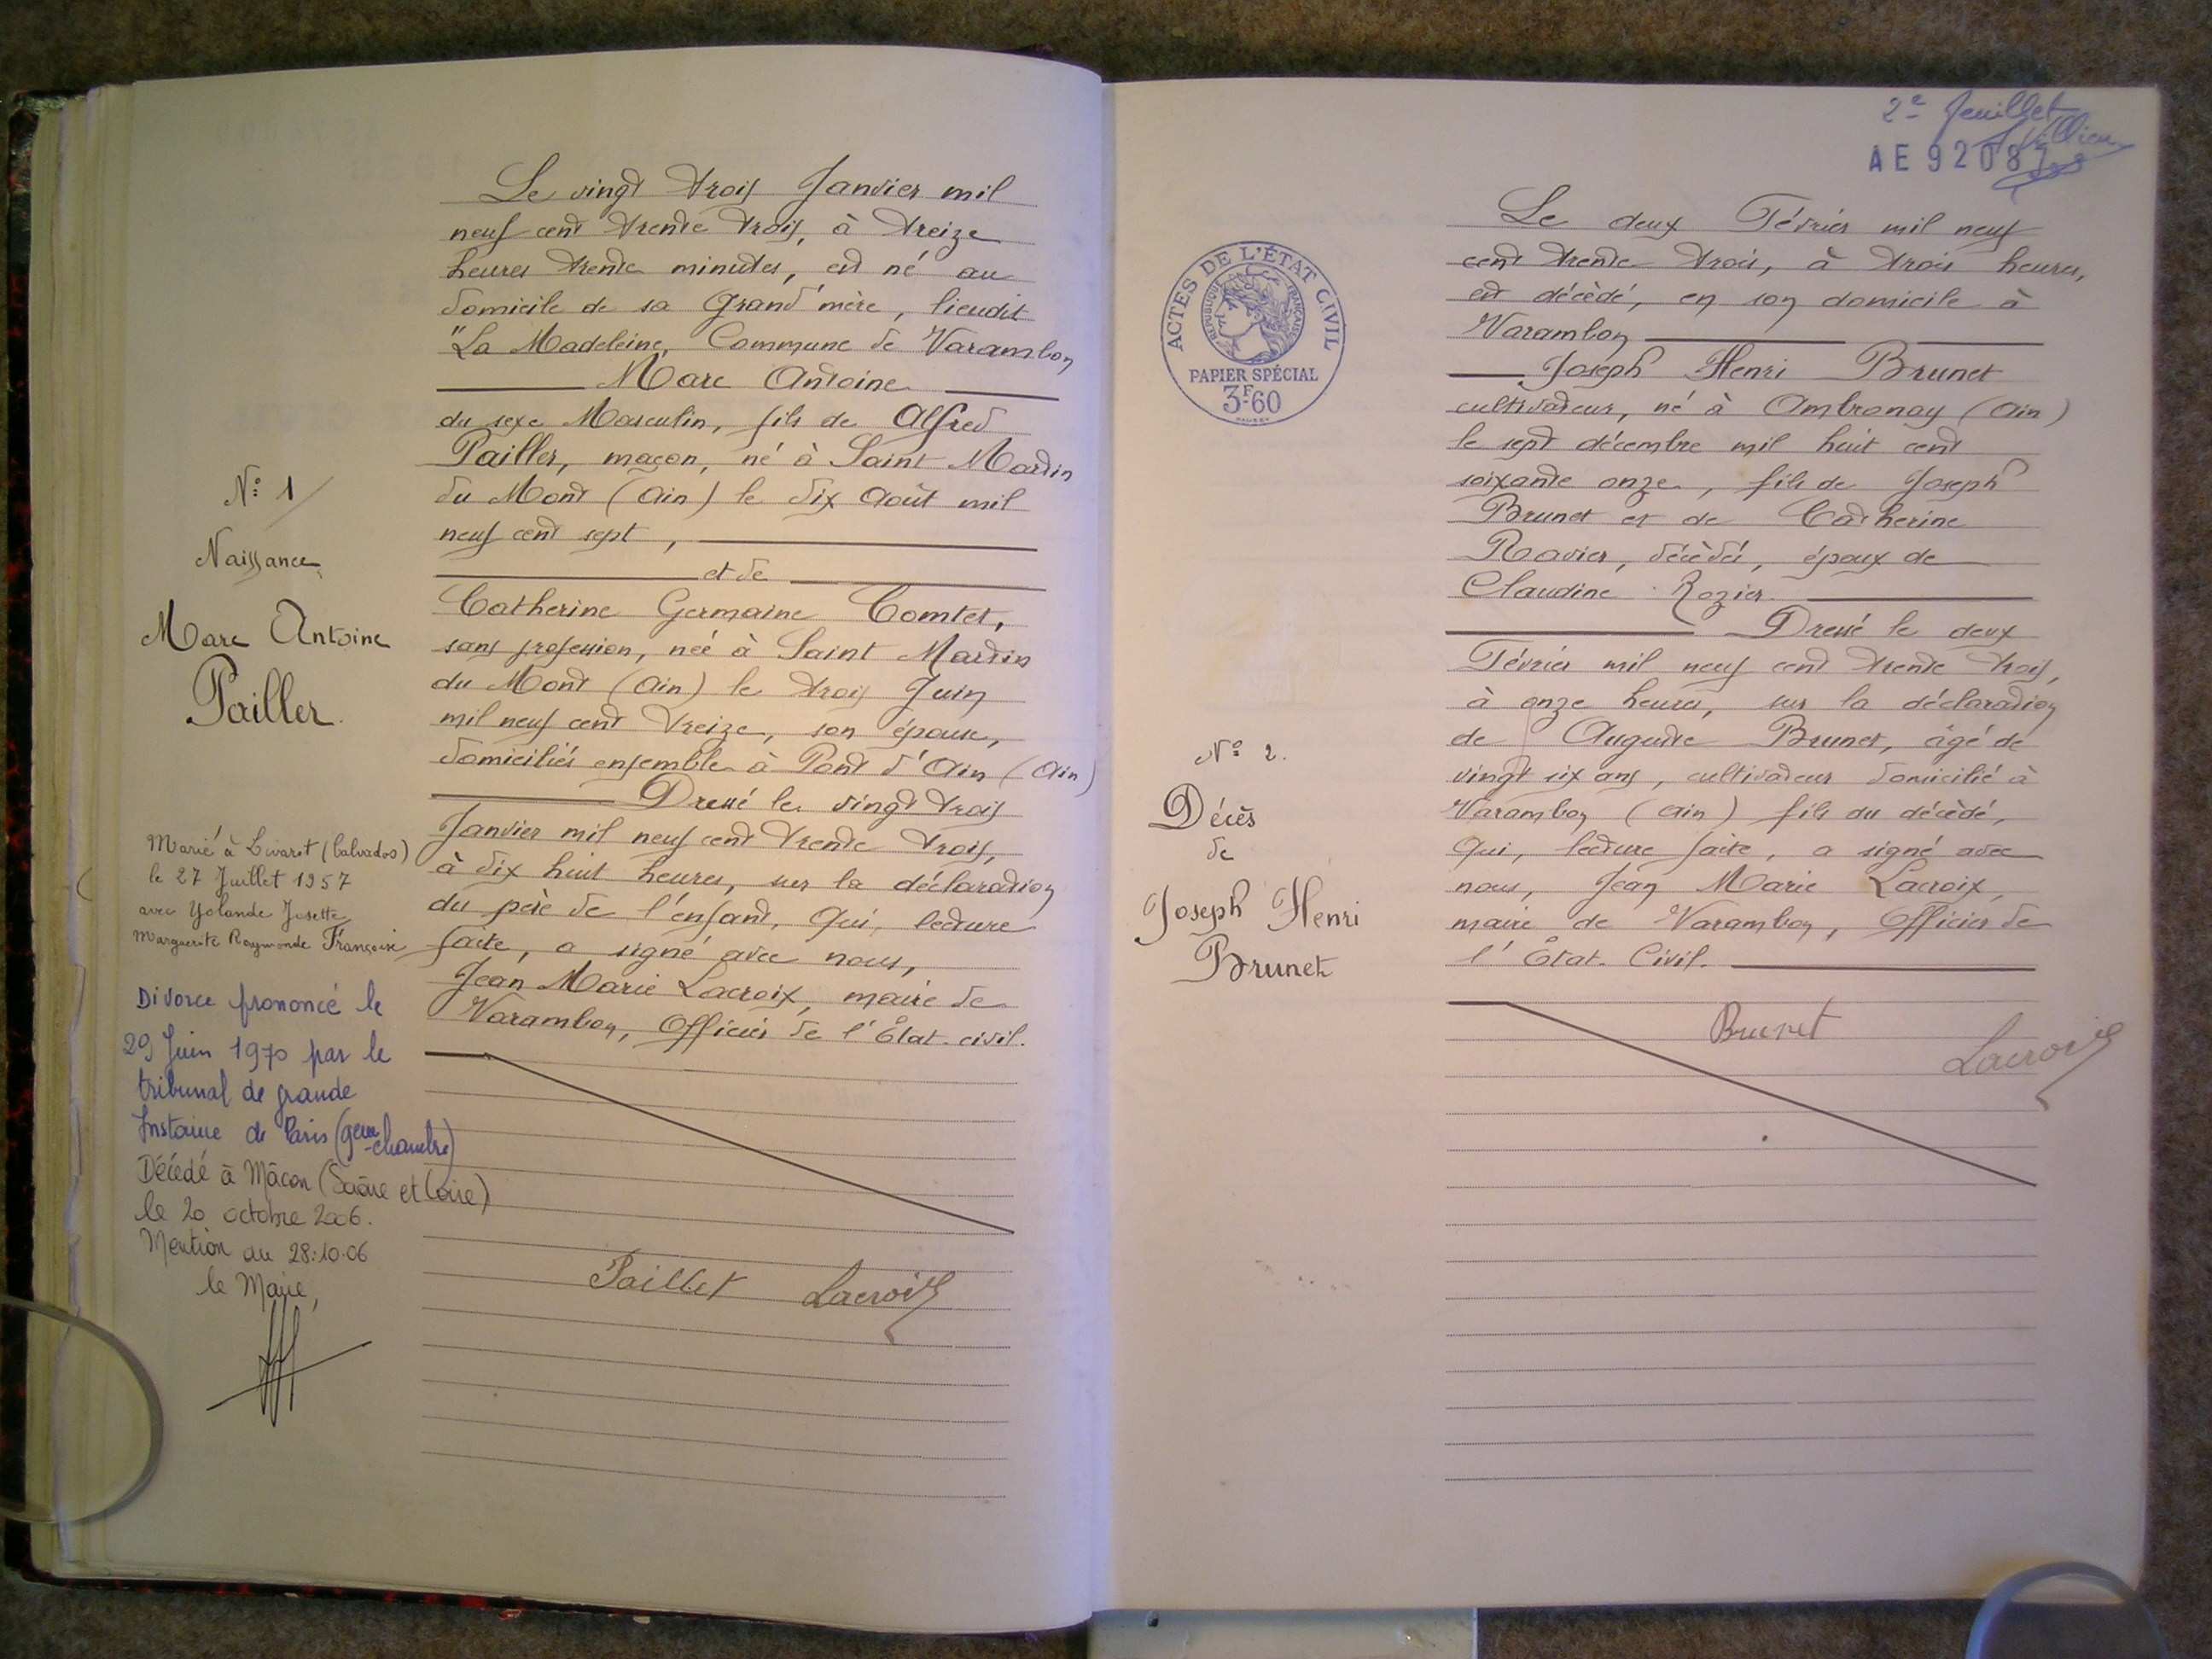 N° 1
Naissance
Marc Antoine
Pailler.
Marié à Livarot (Calvados)
le 27 Juillet 1957
avec Yolande Josette
Marguerite Raymonde Françoise
Divorce prononcé le
29 Juin 1970 par le
tribunal de grande
Instance de Paris
chambre)
Décédé à Mâcon (Saône et Loire)
le 20 octobre 2006.
Mention au 28.10.06
le Maire,
Le vingt trois Janvier mil
neuf cent trente trois, à treize
heures trente minutes, est né au
domicile de sa Grand'mère, lieudit
"La Madeleine, Commune de Varambon
Marc Antoine
du sexe Masculin, fils de Alfred
Pailler, maçon, né à Saint Martin
du Mont (Ain) le dix Août mil
neuf cent sept,
et de
Catherine Germaine Comtet,
sans profession, née à Saint Martin
du Mont (Ain) le trois Juin
mil neuf cent treize, son épouse,
domiciliés ensemble à Pont d'Ain (Ain)
Dressé le vingt trois
Janvier mil neuf cent trente trois,
à dix huit heures, sur la déclaration
du père de l'enfant, Qui, lecture
faite, a signé avec nous,
Jean Marie Lacroix, maire de
Varambon, Officier de l'État-civil.
Paillet Lacroix
2e feuillet
AE 9208
ACTES DE L'ÉTAT CIVIL
RÉPUBLIQUE FRANÇAISE
PAPIER SPÉCIAL
3F60
N° 2.
Décès
de
Joseph Henri
Brunet
Le deux Février mil neuf
cent trente trois, à trois heures,
est décédé, en son domicile à
Varambon
Joseph Henri Brunet
cultivateur, né à Ambronay (Ain)
le sept décembre mil huit cent
soixante onze, fils de Joseph
Brunet et de Catherine
Ravier, décédés, époux de
Claudine Rozier.
Dressé le deux
Février mil neuf cent trente trois,
à onze heures, sur la déclaration
de Auguste Brunet, âgé de
vingt six ans, cultivateur domicilié à
Varambon (Ain) fils du décédé,
Qui, lecture faite, a signé avec
nous, Jean Marie Lacroix,
maire de Varambon, Officier de
l'État-Civil.
Brunet
Lacroix